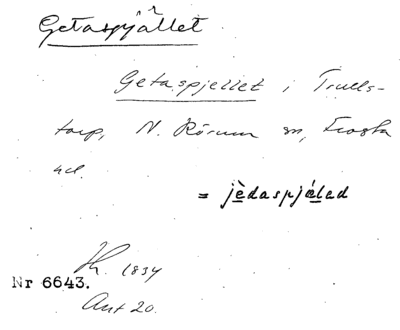 Getaspjället
Getaspjellet i Trulls-
torp, N. Rörum sn, Frosta
hd.
= jèdaspjælad
1834
Nr 6643.
Ant 20.